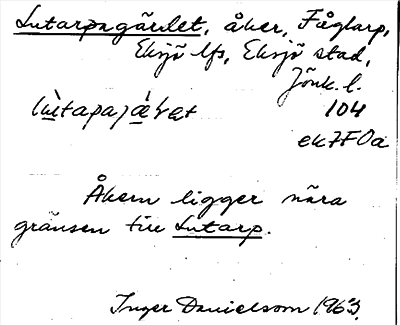 Lutarpagärdet, åker, Fåglarp,
Eksjö lfs, Eksjö stad,
Jönk. l.
104
ek7F0a
Åkern ligger nära
gränsen till Lutarp.
Inger Danielsson 1963.